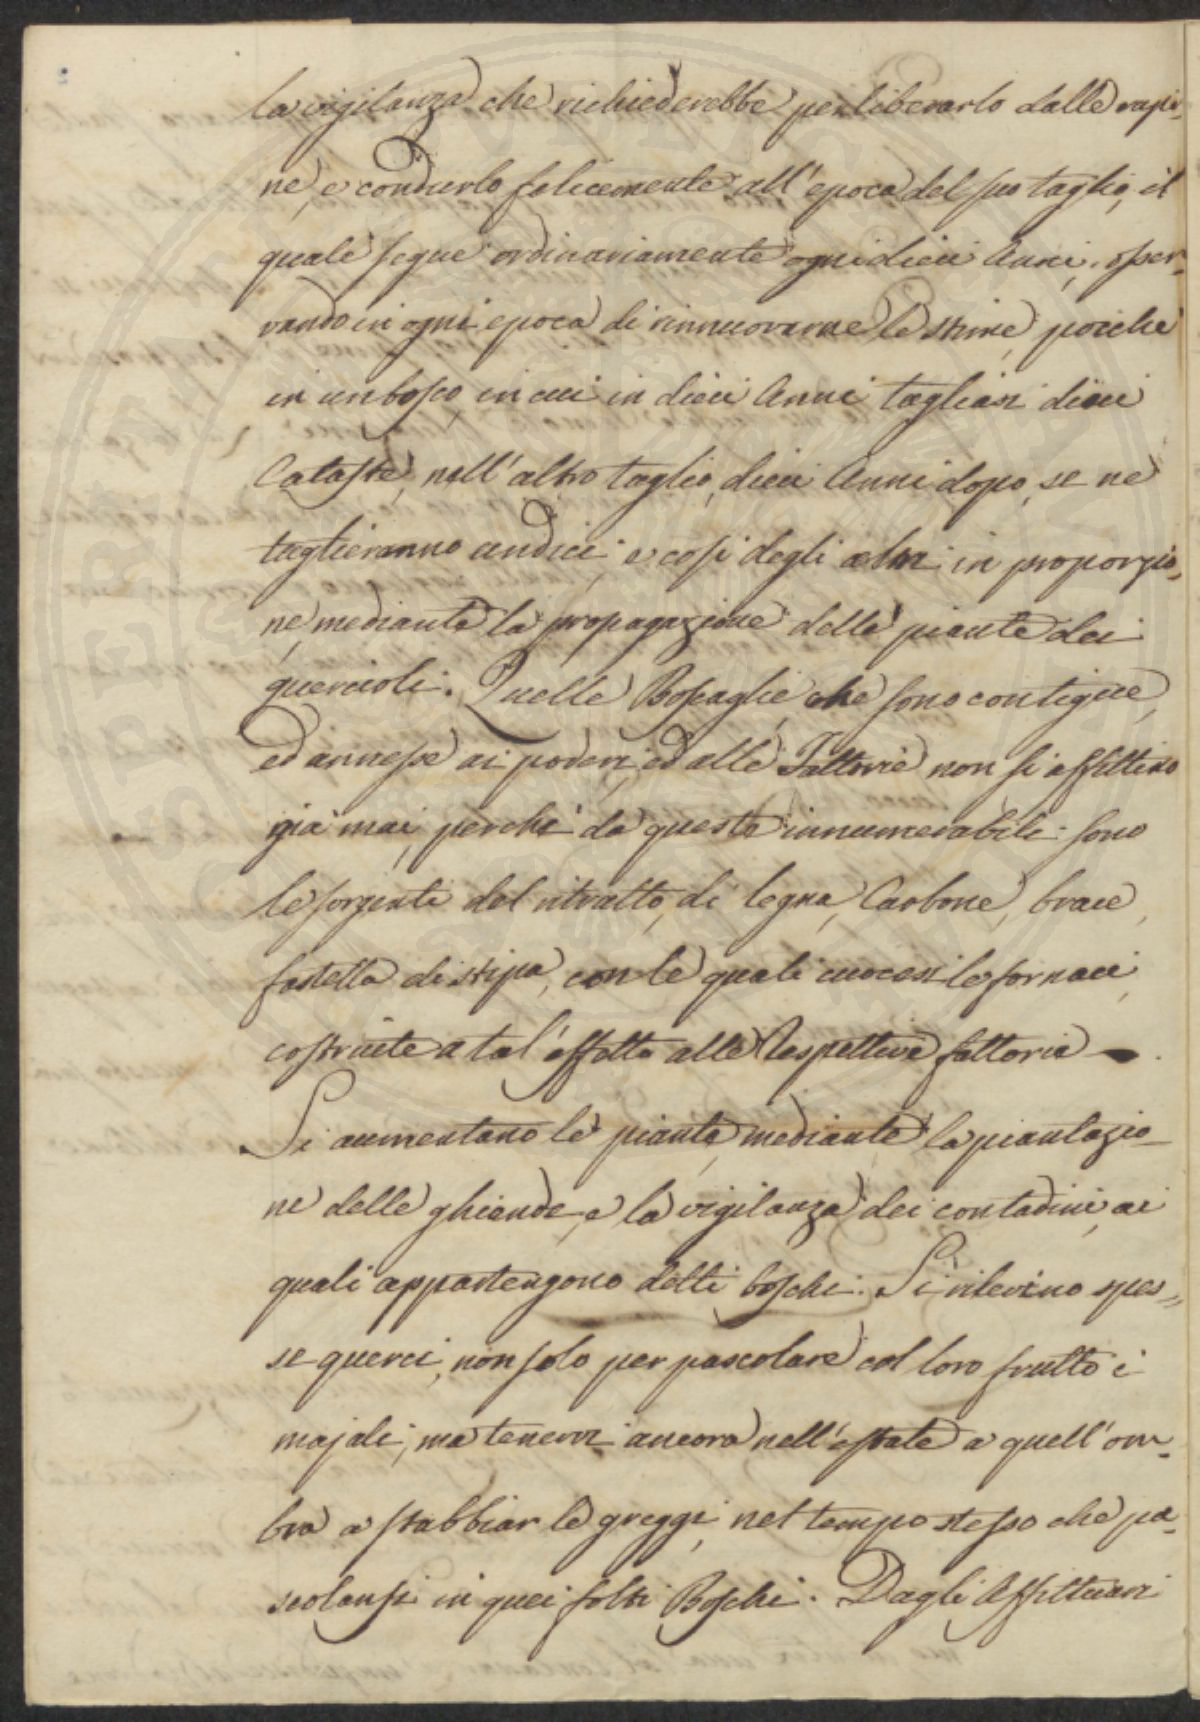 la vigilanza che richiederebbe per liberarlo dalle rapi-
ne, e condurlo felicemente all'epoca del suo taglio, il
quale segue ordinariamente ogni dieci Anni, osser-
vando in ogni epoca di rinnuovarne le stime, poiche
in un bosco, in cui in dieci Anni tagliasi dieci
Cataste, nell'altro taglio, dieci Anni dopo, se ne
taglieranno undici, e così degli altri in proporzio-
ne, mediante la propagazione delle piante dei
quercioli. Quelle Boscaglie, che sono contigue,
ed annesse ai poderi, ed alle Fattorie non si affittino
già mai, perché da queste innumerabili sono
le sorgenti del ritratto, di legna, Carbone, brace,
fastella di stipa, con le quali cuocesi le fornaci,
costruite a tal'effetto alle Respettive fattorie —.
Si aumentano le piante, mediante la piantazio-
ne delle ghiande, e la vigilanza dei contadini, ai
quali appartengono detti boschi. Si rilevino spes=
se querci, non solo per pascolare col loro frutto i
majali, ma tenervi ancora nell'estate a quell'om-
bra a stabbiar le greggi, nel tempo stesso che pa-
scolansi in quei folti Boschi. Dagli Affittuari
SUPREMA